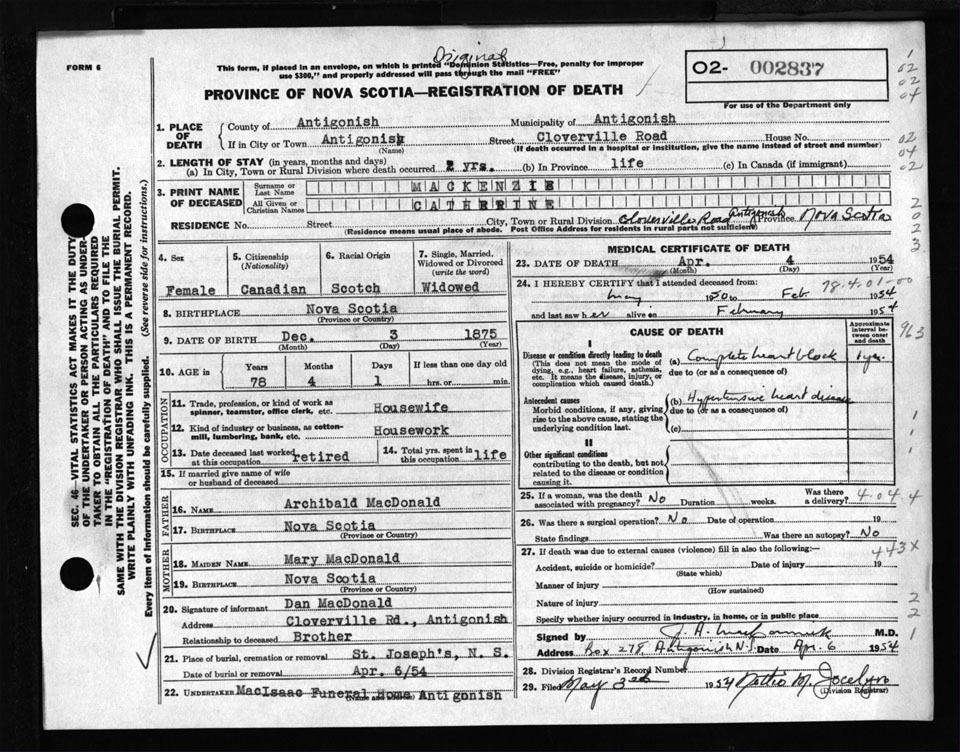 Original
FORM 6
This form, if placed in an envelope, on which is printed "Dominion Statistics—Free, penalty for improper
use $300," and properly addressed will pass through the mail "FREE"
O2- 002837
For use of the Department only
PROVINCE OF NOVA SCOTIA—REGISTRATION OF DEATH
1. PLACE OF DEATH
County of Antigonish Municipality of Antigonish
If in City or Town Antigonish Street Cloverville Road House No.
(Name) (If death occurred in a hospital or institution, give the name instead of street and number)
2. LENGTH OF STAY (in years, months and days)
(a) In City, Town or Rural Division where death occurred 2 yrs. (b) In Province life (c) In Canada (if immigrant)
3. PRINT NAME OF DECEASED
Surname or Last Name MACKENZIE
All Given or Christian Names CATHERINE
RESIDENCE No. Street City, Town or Rural Division Cloverville Road Antigonish Province Nova Scotia
(Residence means usual place of abode. Post Office Address for residents in rural parts not sufficient)
4. Sex
Female
5. Citizenship (Nationality)
Canadian
6. Racial Origin
Scotch
7. Single, Married, Widowed or Divorced (write the word)
Widowed
8. BIRTHPLACE Nova Scotia
(Province or Country)
9. DATE OF BIRTH Dec. 3 1875
(Month) (Day) (Year)
10. AGE in
Years Months Days If less than one day old
78 4 1 hrs. or min.
OCCUPATION
11. Trade, profession, or kind of work as
spinner, teamster, office clerk, etc. Housewife
12. Kind of industry or business, as cotton-
mill, lumbering, bank, etc. Housework
13. Date deceased last worked at this occupation retired
14. Total yrs. spent in this occupation life
15. If married give name of wife
or husband of deceased
FATHER
16. NAME Archibald MacDonald
17. BIRTHPLACE Nova Scotia
(Province or Country)
MOTHER
18. MAIDEN NAME Mary MacDonald
19. BIRTHPLACE Nova Scotia
(Province or Country)
20. Signature of informant Dan MacDonald
Address Cloverville Rd., Antigonish
Relationship to deceased Brother
21. Place of burial, cremation or removal St. Joseph's, N. S.
Date of burial or removal Apr. 6/54
22. UNDERTAKER MacIsaac Funeral Home Antigonish
(Name and Address)
MEDICAL CERTIFICATE OF DEATH
23. DATE OF DEATH Apr. 4 1954
(Month) (Day) (Year)
24. I HEREBY CERTIFY that I attended deceased from:
78.4.01-00
May 1950 to Feb. 1954
and last saw her alive on February 1954
CAUSE OF DEATH
Approximate interval between onset and death
I
Disease or condition directly leading to death
(This does not mean the mode of
dying, e.g., heart failure, asthenia,
etc. It means the disease, injury, or
complication which caused death.)
(a) Complete heart block 1 yr.
due to (or as a consequence of)
Antecedent causes
Morbid conditions, if any, giving
rise to the above cause, stating the
underlying condition last.
(b) Hypertensive heart disease
due to (or as a consequence of)
(c)
II
Other significant conditions
contributing to the death, but not
related to the disease or condition
causing it.
25. If a woman, was the death associated with pregnancy? No Duration weeks. Was there a delivery?
4.04.4
26. Was there a surgical operation? No Date of operation 19
State findings Was there an autopsy? No
27. If death was due to external causes (violence) fill in also the following:—
443X
Accident, suicide or homicide? Date of injury 19
(State which)
Manner of injury
(How sustained)
Nature of injury
Specify whether injury occurred in industry, in home, or in public place
Signed by J. A. MacCormick M.D.
Address Box 278 Antigonish N.S. Date Apr. 6 1954
28. Division Registrar's Record Number
29. Filed May 3rd 1954
(Division Registrar)
SEC. 46 VITAL STATISTICS ACT MAKES IT THE DUTY
OF THE UNDERTAKER OR PERSON ACTING AS UNDER-
TAKER TO OBTAIN ALL THE PARTICULARS REQUIRED
IN THE "REGISTRATION OF DEATH" AND TO FILE THE
SAME WITH THE DIVISION REGISTRAR WHO SHALL ISSUE THE BURIAL PERMIT.
WRITE PLAINLY WITH UNFADING INK. THIS IS A PERMANENT RECORD.
Every item of information should be carefully supplied. (See reverse side for instructions.)
1
02
02
04
02
04
02
2
0
2
3
963
1
1
1
2
2
1